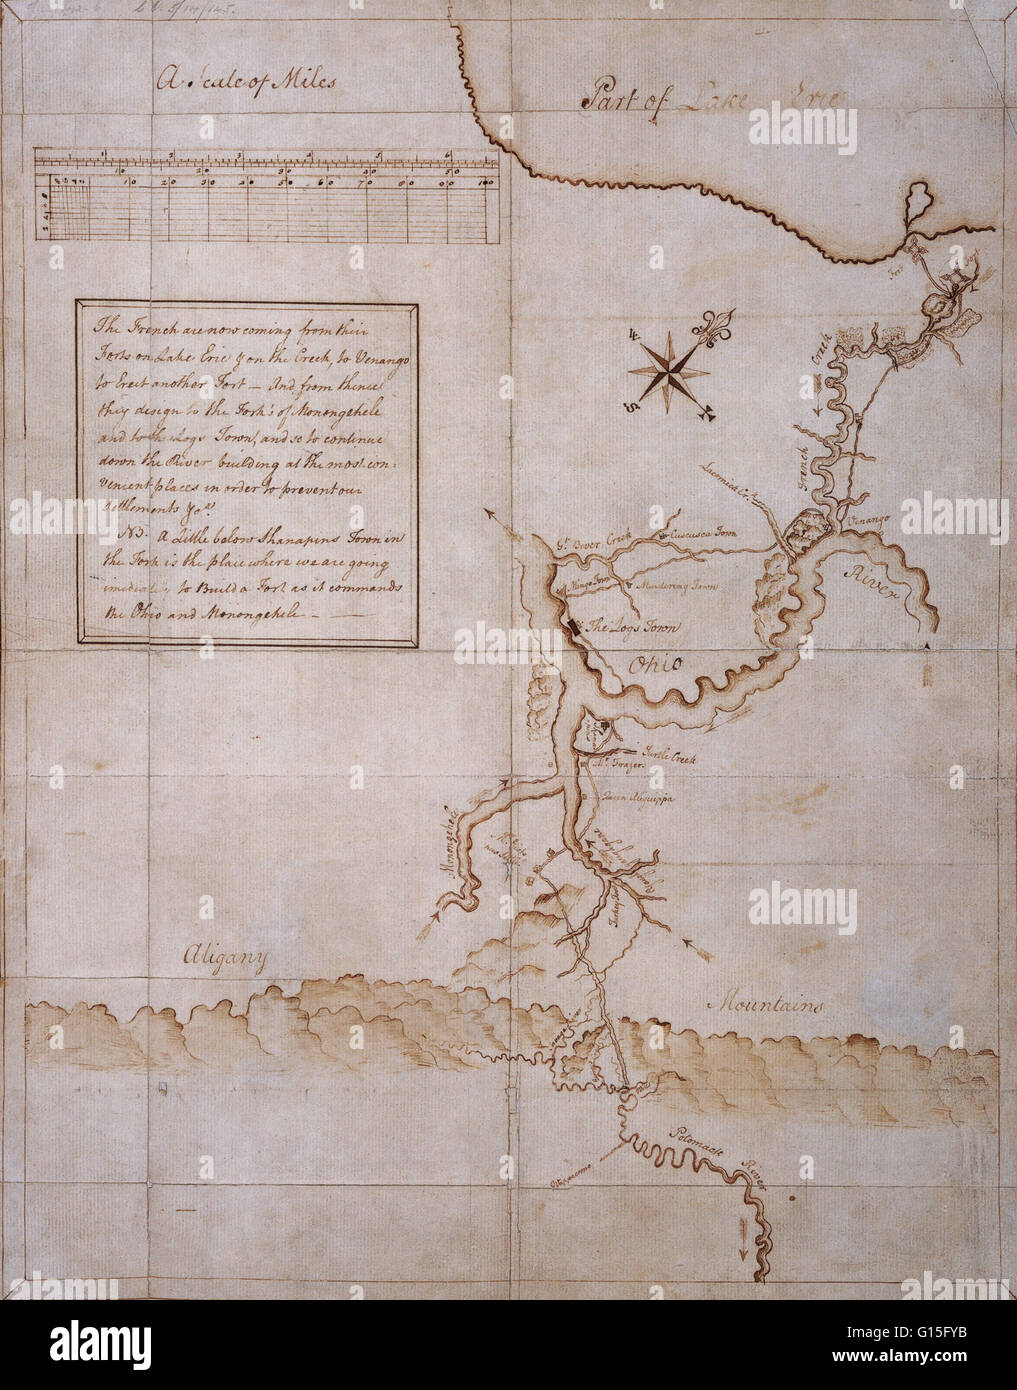 A Scale of Miles
Part of Lake Erie
The French are now coming from their
Forts on Lake Erie & on the Creek, to Venango
to Erect another Fort – And from thence
they design to the Fork's of Monongehele
and to the Logs Town, and so to continue
down the River building at the most con-
venient places in order to prevent our
Settlements &ca
NB. A Little below Shanapins Town in
the Fork is the place where we are going
imediately to Build a Fort as it commands
the Ohio and Monongehele
French Creek
Venango
River
Gt Bever Creek
Cuscusca Town
Mingo Town
Murdering Town
The Logs Town
Ohio
Turtle Creek
Mr Frazers
Queen Aliquippa
Monongehele
Aligany
Mountains
Potomack River
alamy
alamy stock photo
G15FYB
www.alamy.com